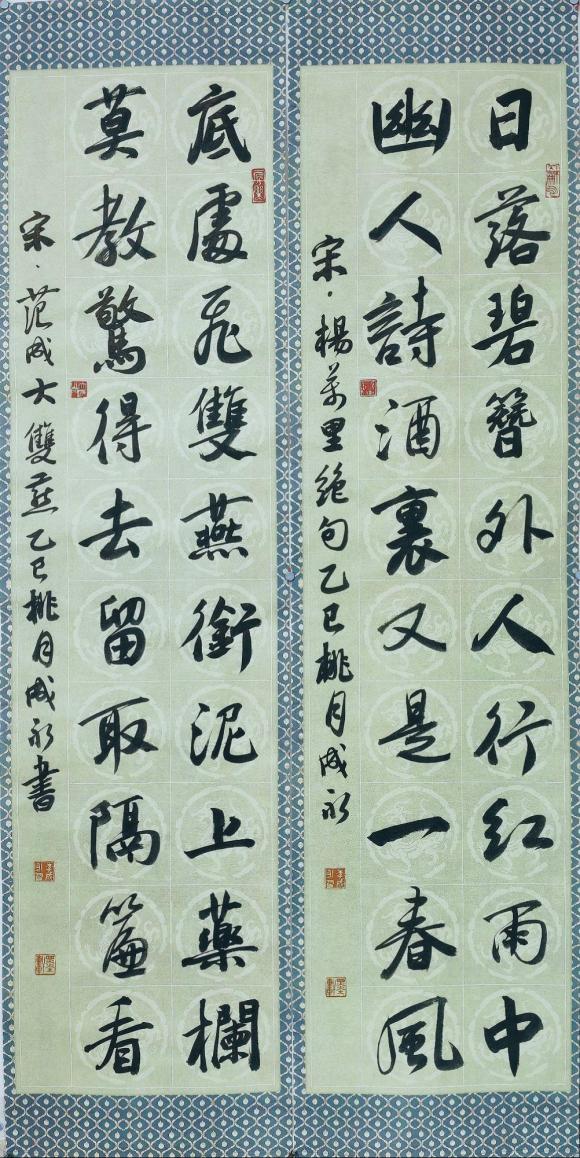 日落碧簪外人行红雨中
幽人詩酒裏又是一春風
宋·楊萬里絕句乙巳桃月成永
底處飛雙燕銜泥上藥欄
莫教驚得去留取隔簾看
宋·范成大雙燕乙巳桃月成永書